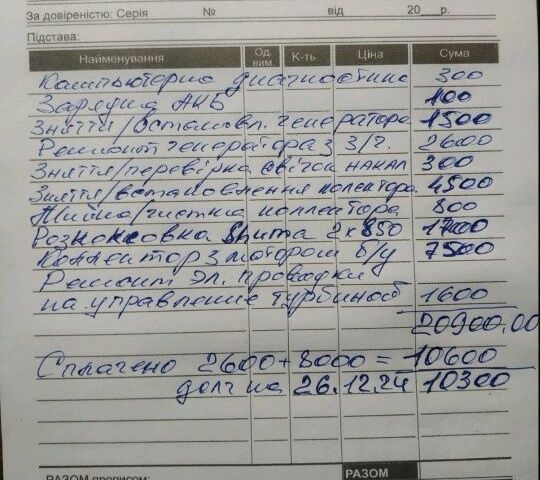 За довіреністю: Серія № від 20 р.
Підстава:
Найменування Од. вим. К-ть Ціна Сума
Компьюторна диагностика 300
Зарядка АКБ 100
Зняття/встановл. генератора 1500
Ремонт генератора з з/ч. 2600
Зняття/перевірка свічок накал 300
Зняття/встановлення колектора 4500
Мийка/чистка коллектора 800
Розкоксовка Shuma 2х850 1700
Коллектор з мотором б/у 7500
Ремонт эл. проводки
на управление турбиной 1600
20900,00
Сплачено 2600+8000 = 10600
долг на 26.12.24 10300
РАЗОМ прописом: РАЗОМ